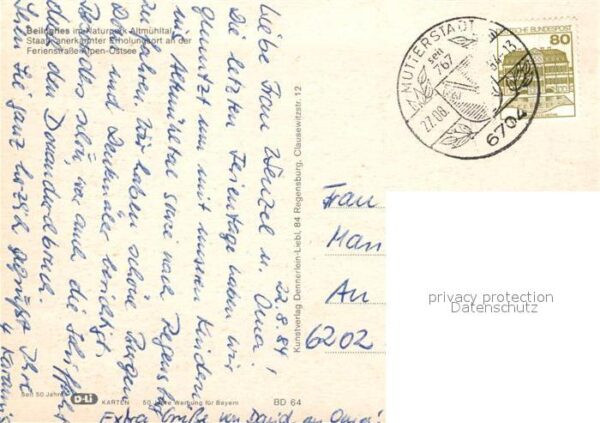 Beilngries im Naturpark Altmühltal
Staatl. anerkannter Erholungsort an der
Ferienstraße Alpen-Ostsee
22.8.84
Liebe Frau Wenzel u. Oma!
Die letzten Ferientage haben wir
genutzt um mit unseren Kindern
ins Altmühltal sowie nach Regensburg
zu fahren. Wir haben schöne Burgen
und Denkmäler besichtigt.
Besonders schön war auch die Schiffahrt
durch den Donaudurchbruch.
Seien Sie ganz herzlich gegrüßt Ihre
4
Extra Grüße von David an Oma!
Kunstverlag Dennerlein-Liebl, 84 Regensburg, Clausewitzstr. 12
Seit 50 Jahren D-Li KARTEN 50 Jahre Werbung für Bayern
BD 64
MUTTERSTADT
seit
767
22.08.84-13
6704
DEUTSCHE BUNDESPOST
80
Frau
Man
An
6202
privacy protection
Datenschutz